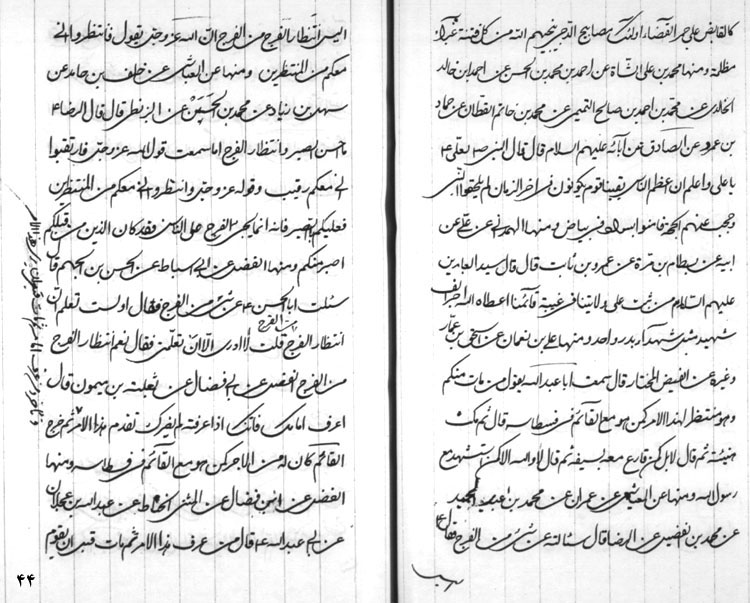 كالقابض على جمر الغضاء اولئك مصابيح الدجى ينجيهم الله من كل فتنة غبراء
مظلمة ومنها محمد بن على الشاة عن احمد بن محمد بن الحسن عن احمد بن خالد
الخالدى عن محمد بن احمد بن صالح التميمى عن محمد بن حاتم القطان عن حماد
بن عمرو عن الصادق عن آبائه عليهم السلام قال قال النبى ص لعلى ع
يا على واعلم ان اعظم الناس يقينا قوم يكونون فى اخر الزمان لم يلحقوا النبى
وحجب عنهم الحجة فامنوا بسواد فى بياض ومنها الهمدانى عن على عن
ابيه عن بسطام بن مرة عن عمرو بن ثابت قال قال سيد العابدين
عليهم السلام من ثبت على ولايتنا فى غيبة قائمنا اعطاه الله اجر الف
شهيد مثل شهداء بدر واحد ومنها على بن نعمان عن اسحق بن عمار
وغيره عن الفيض المختار قال سمعت ابا عبد الله يقول من مات منكم
وهو منتظر لهذا الامر كمن هو مع القائم فى فسطاسه قال ثم مكث
هنيئة ثم قال لا بل كمن قارع معه بسيفه ثم قال لا والله الا كمن استشهد مع
رسول الله ومنها عن العياشى عن عمران عن محمد بن عبد الحميد
عن محمد بن الفضيل عن الرضا قال سئالته عن شىء من الفرج فقال ع
اليس انتظار الفرج من الفرج ان الله عز وجل يقول فانتظروا انى
معكم من المنتظرين ومنها عن العياشى عن خلف بن حامد عن
سهل بن زياد عن محمد بن الحسين عن البزنطى قال قال الرضا ع
ما احسن الصبر وانتظار الفرج اما سمعت قول الله عز وجل فارتقبوا
انى معكم رقيب وقوله عز وجل وانتظروا انى معكم من المنتظرين
فعليكم بالصبر فانه انما يجىء الفرج على الياس فقد كان الذين من قبلكم
اصبر منكم ومنها الفضل عن ابن اسباط عن الحسن بن الجهم قال
سئلت ابا الحسن ع عن شىء من الفرج فقال اولست تعلم ان
انتظار الفرج من الفرج قلت لا ادرى الا ان تعلمنى فقال نعم انتظار الفرج
من الفرج الفضل عن ابن فضال عن ثعلبة بن ميمون قال
اعرف امامك فانك اذا عرفته لم يضرك تقدم هذا الامر ثم خرج
القائم كان له من الاجر كمن هو مع القائم فى فسطاسه ومنها
الفضل عن ابن فضال عن المثنى الحناط عن عبد الله بن عجلان
عن ابى عبد الله ع قال من عرف هذا الامر ثم مات قبل ان يقوم
۴۴